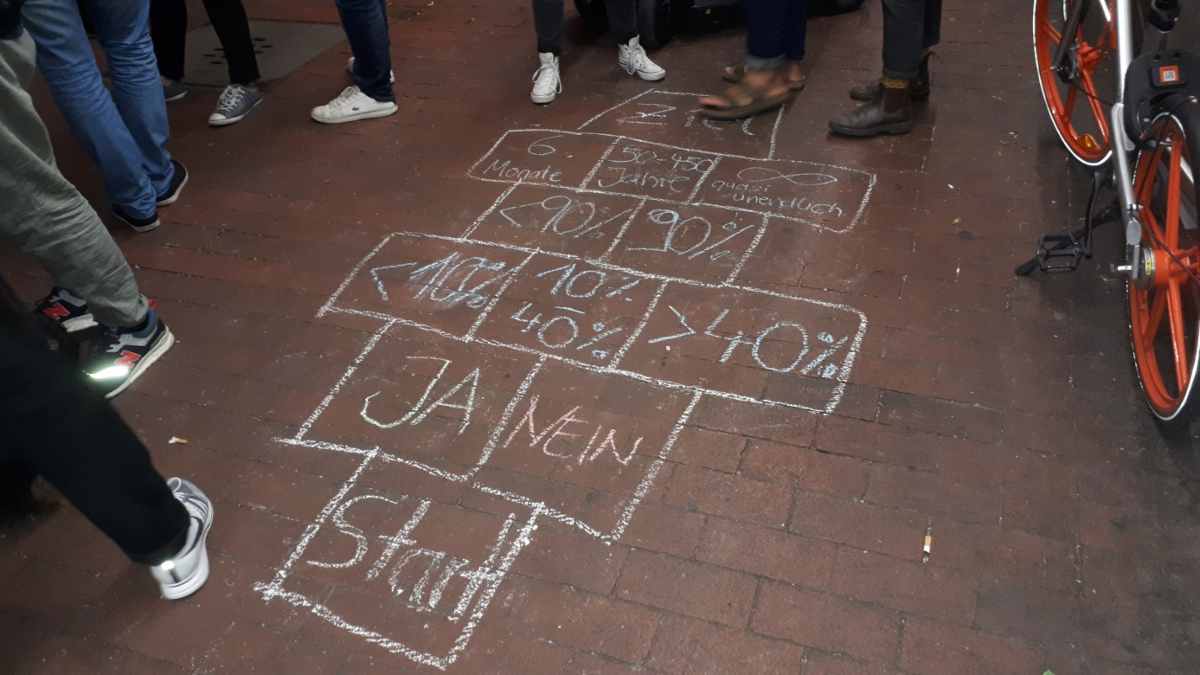 Ziel
6
Monate
50-450
Jahre
∞
quasi
unendlich
<90%
90%
<10%
10%
40%
>40%
JA
NEIN
Start